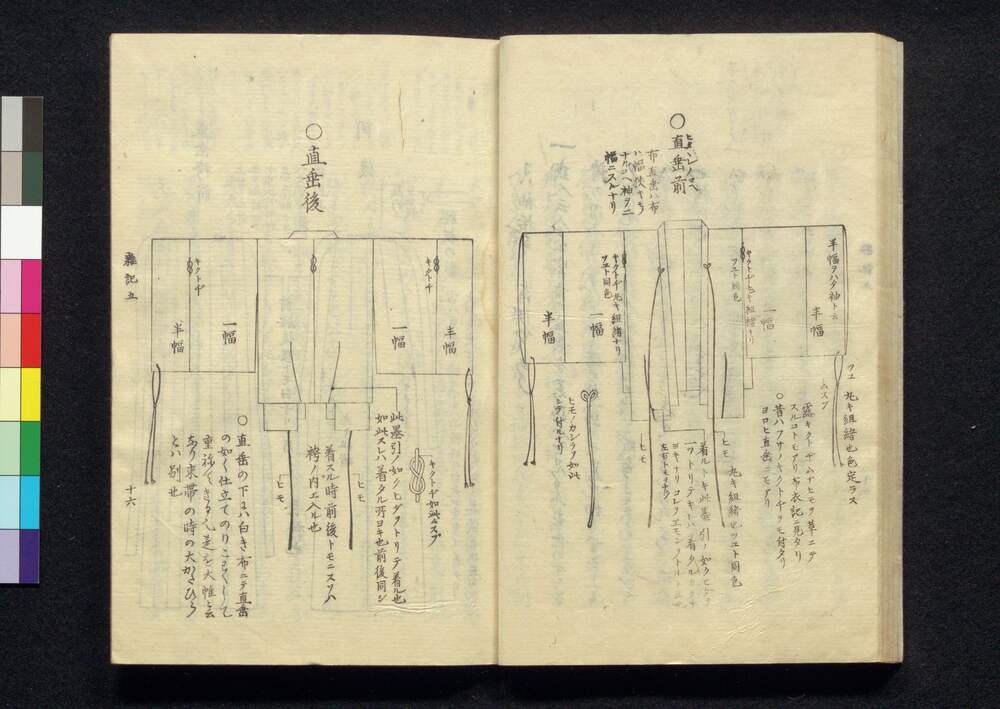 ○直垂前
布直垂ハ布
ハ幅狭キモ
ナルユヘ袖ヲ二
幅ニスルナリ
半幅ヲハタ袖ト云
半幅
一幅
キクトヂ丸キ組緒ナリ
ツユト同色
キクトヂ丸キ組緒ナリ
ツユト同色
一幅
半幅
ツユ 丸キ組緒也色定ラス
ムスブ
露キクトヂムナヒモヲ革ニテ
スルコトモアリ布衣記ニ見タリ
○昔ハフサノキクトヂヲモ付タリ
ヨロヒ直垂ニモアリ
ヒモ
丸キ組緒也ツユト同色
着ルトキ此墨引ノ如クヒダヲ
左右トモ
ヒモ
ヒモノカシラヲ如此
シテ付ルナリ
○直垂後
キクトヂ
キクトヂ
半幅
一幅
一幅
半幅
キクトヂ如此ムスブ
此墨引ノ如クヒダヲトリテ着ル也
如此スレハ着タル所ヨキ也前後同シ
ヒモ
着スル時前後トモニスソハ
袴ノ内エ入ル也
ヒモ
○直垂の下にハ白き布ニテ直垂
の如く仕立てのりこわくして
重ねてきる也是を大帷と云
あり束帯の時の大かたひら
とハ別也
雑記五
十六